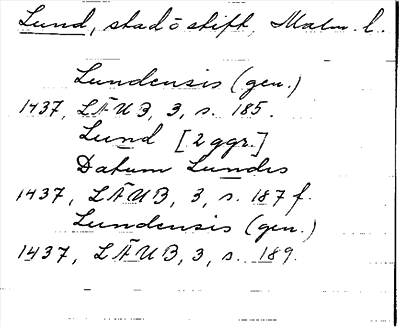 Lund, stad o stift, Malm. l.
Lundensis (gen.)
1437, LÄUB, 3, s. 185.
Lund [2 ggr.]
Datum Lundis
1437, LÄUB, 3, s. 187 f.
Lundensis (gen.)
1437, LÄUB, 3, s. 189.